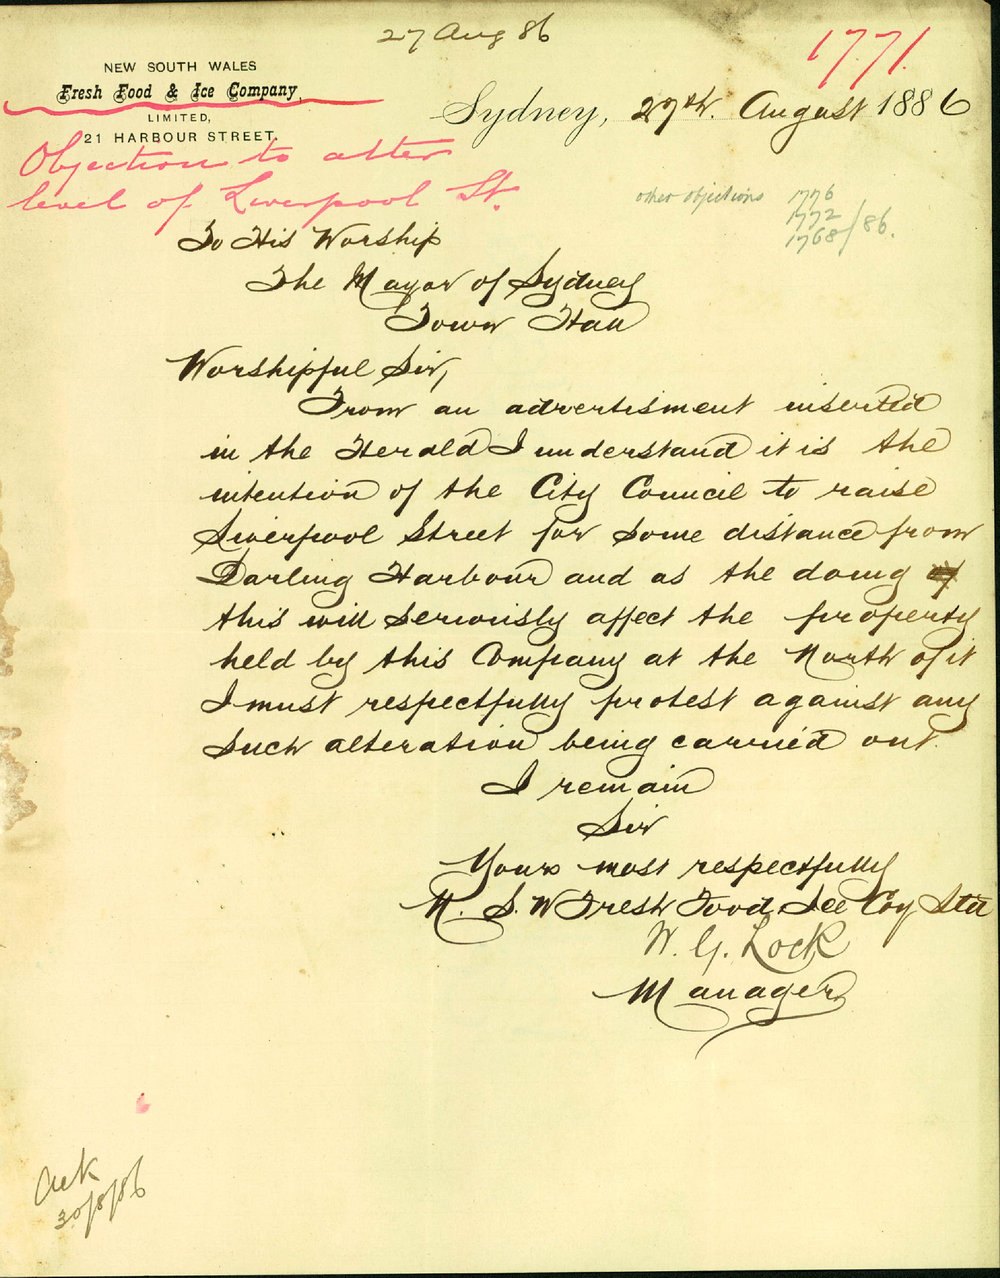 27 Aug 86
1771.
NEW SOUTH WALES
Fresh Food & Ice Company,
LIMITED,
21 HARBOUR STREET.
Sydney, 27th. August 1886
Objection to alter
level of Liverpool St.
other objections 1776
1772
1768/86.
To His Worship
The Mayor of Sydney
Town Hall
Worshipful Sir,
From an advertisment inserted
in the Herald I understand it is the
intention of the City Council to raise
Liverpool Street for some distance from
Darling Harbour and as the doing of
this will seriously affect the property
held by this Company at the North of it
I must respectfully protest against any
such alteration being carried out.
I remain
Sir
Yours most respectfully
N. S. W Fresh Food Ice Coy Ltd
W. G. Lock
Manager
Ack
30/8/86